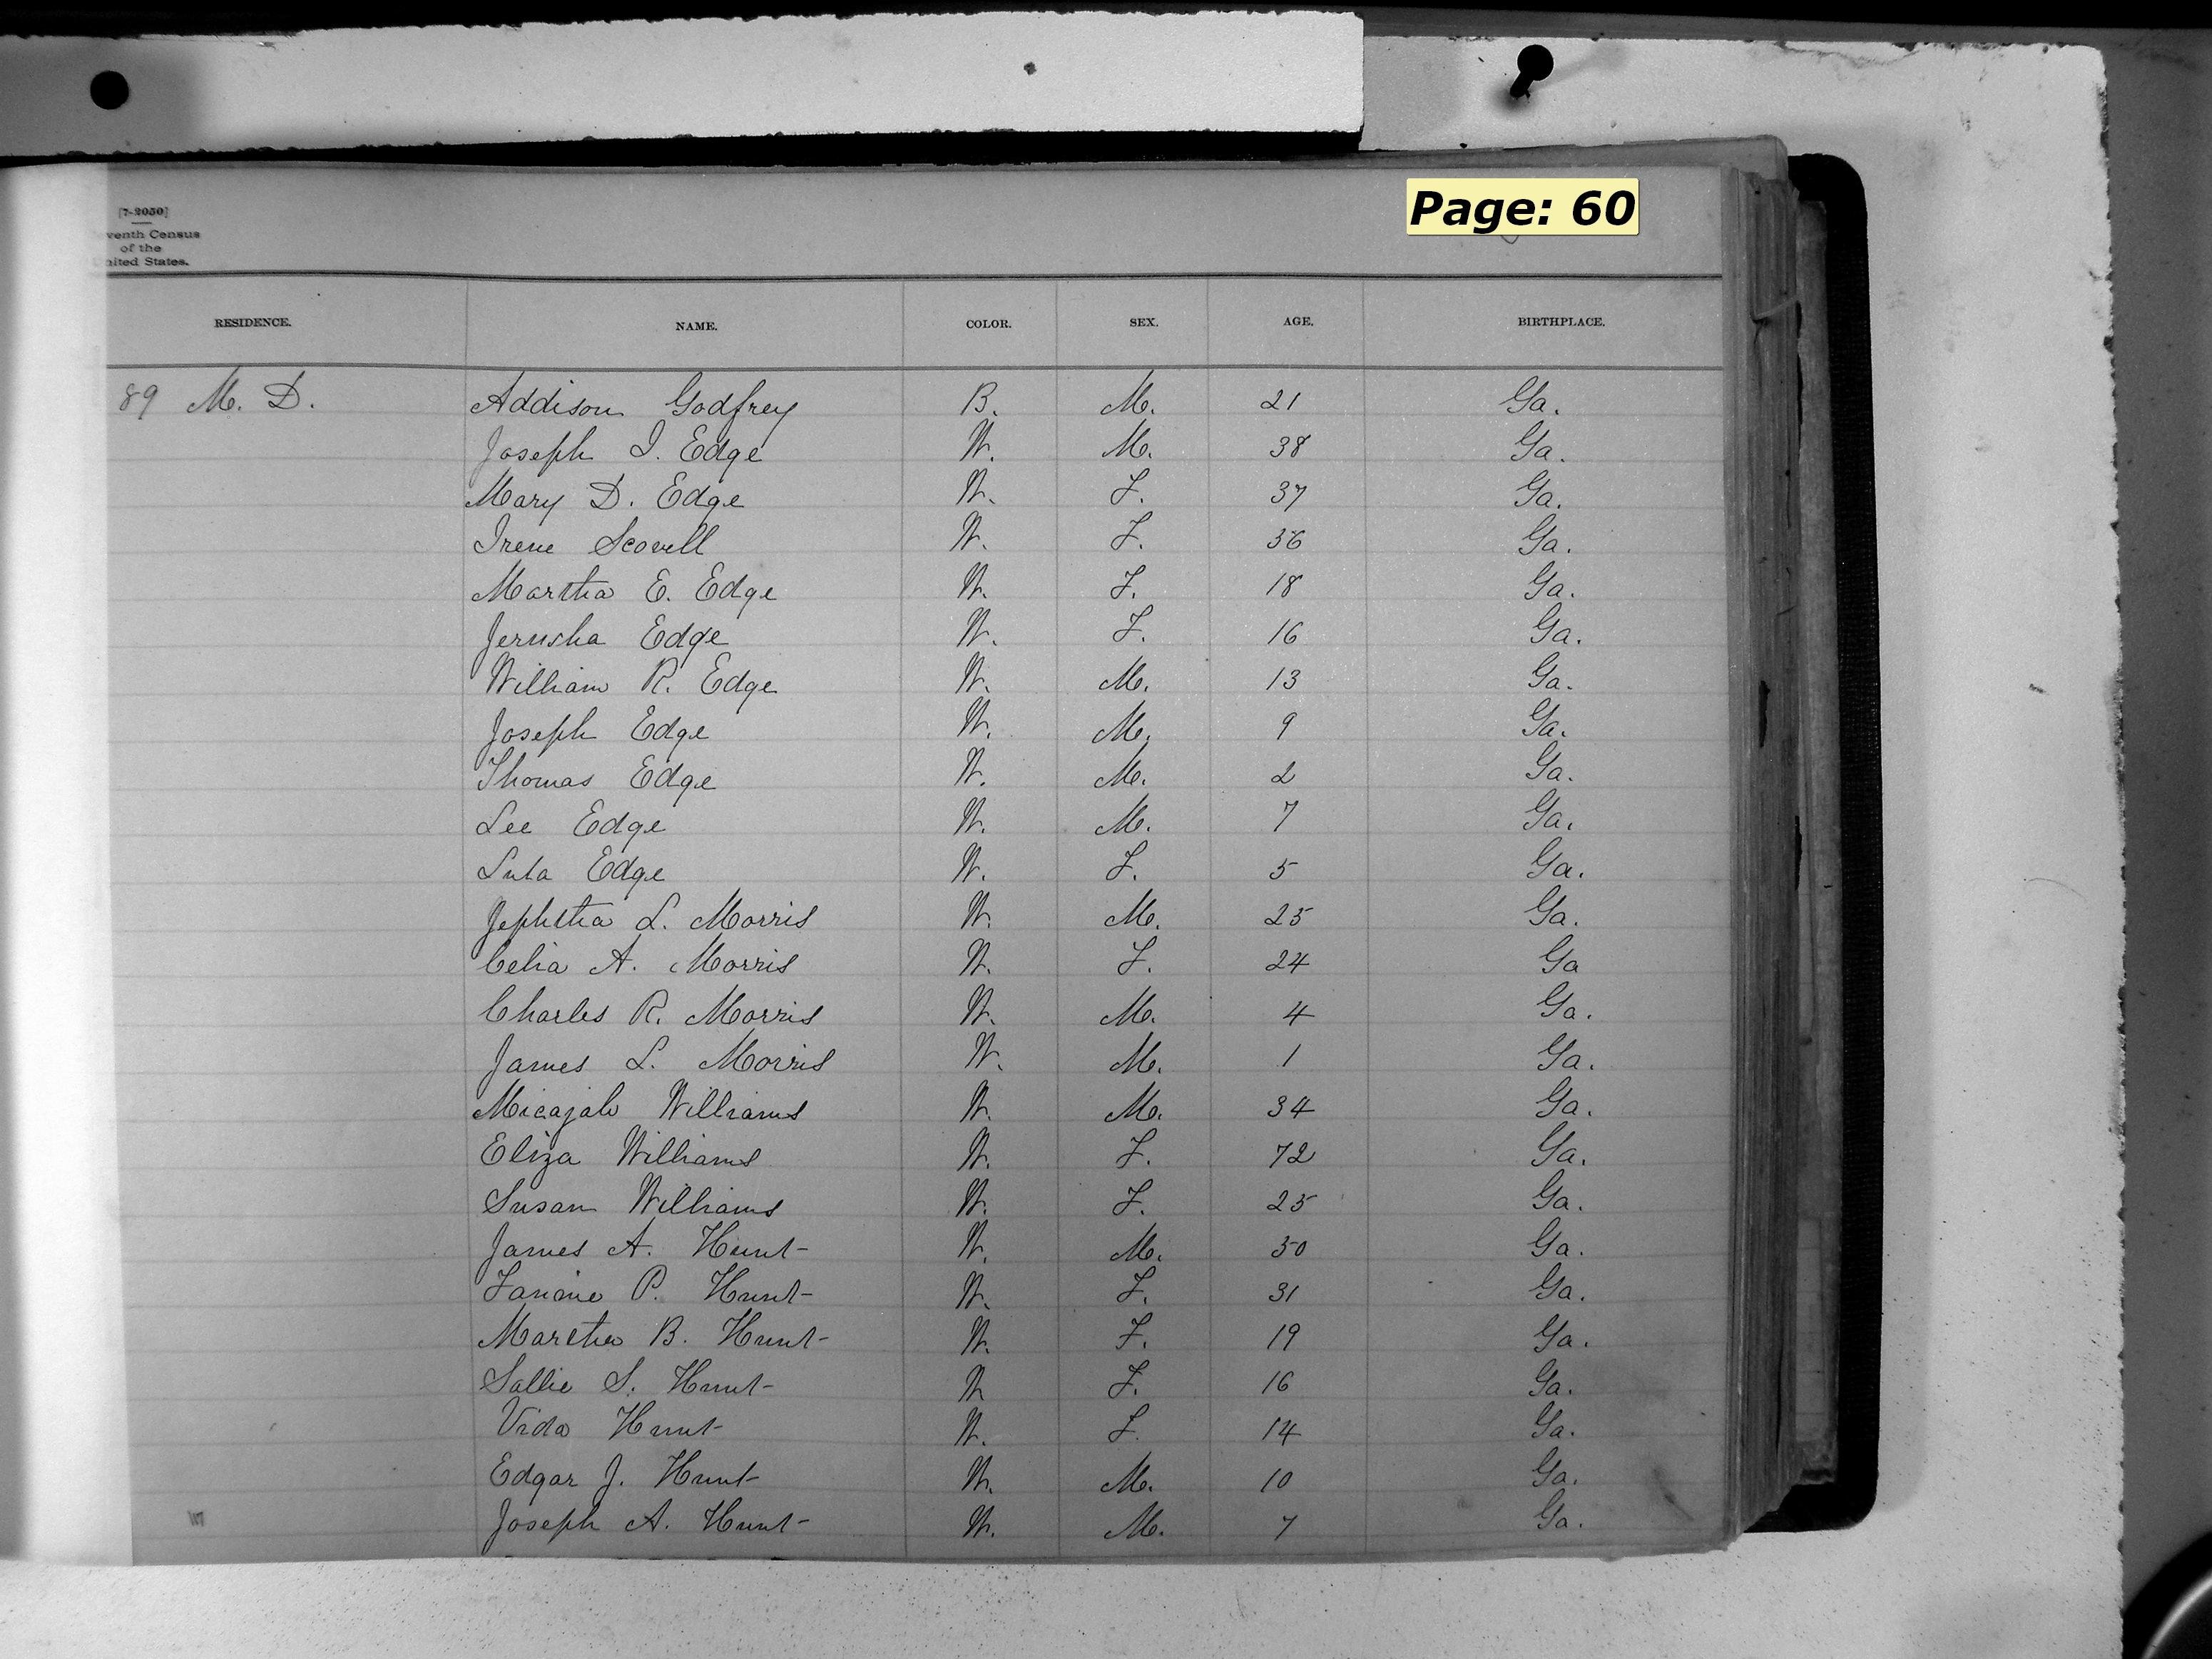 Page: 60
[7-2050]
venth Census
of the
nited States.
RESIDENCE. NAME. COLOR. SEX. AGE. BIRTHPLACE.
89 M. D. Addison Godfrey B. M. 21 Ga.
Joseph I. Edge W. M. 38 Ga.
Mary D. Edge W. F. 37 Ga.
Irene Scovell W. F. 36 Ga.
Martha E. Edge W. F. 18 Ga.
Jerusha Edge W. F. 16 Ga.
William R. Edge W. M. 13 Ga.
Joseph Edge W. M. 9 Ga.
Thomas Edge W. M. 2 Ga.
Lee Edge W. M. 7 Ga.
Lula Edge W. F. 5 Ga.
Jephtha L. Morris W. M. 25 Ga.
Celia A. Morris W. F. 24 Ga
Charles R. Morris W. M. 4 Ga.
James L. Morris W. M. 1 Ga.
Micajah Williams W. M. 34 Ga.
Eliza Williams W. F. 72 Ga.
Susan Williams W. F. 25 Ga.
James A. Hunt W. M. 50 Ga.
Fannie P. Hunt W. F. 31 Ga.
Martha B. Hunt W. F. 19 Ga.
Sallie S. Hunt W F. 16 Ga.
Vida Hunt W. F. 14 Ga.
Edgar J. Hunt W. M. 10 Ga.
Joseph A. Hunt W. M. 7 Ga.